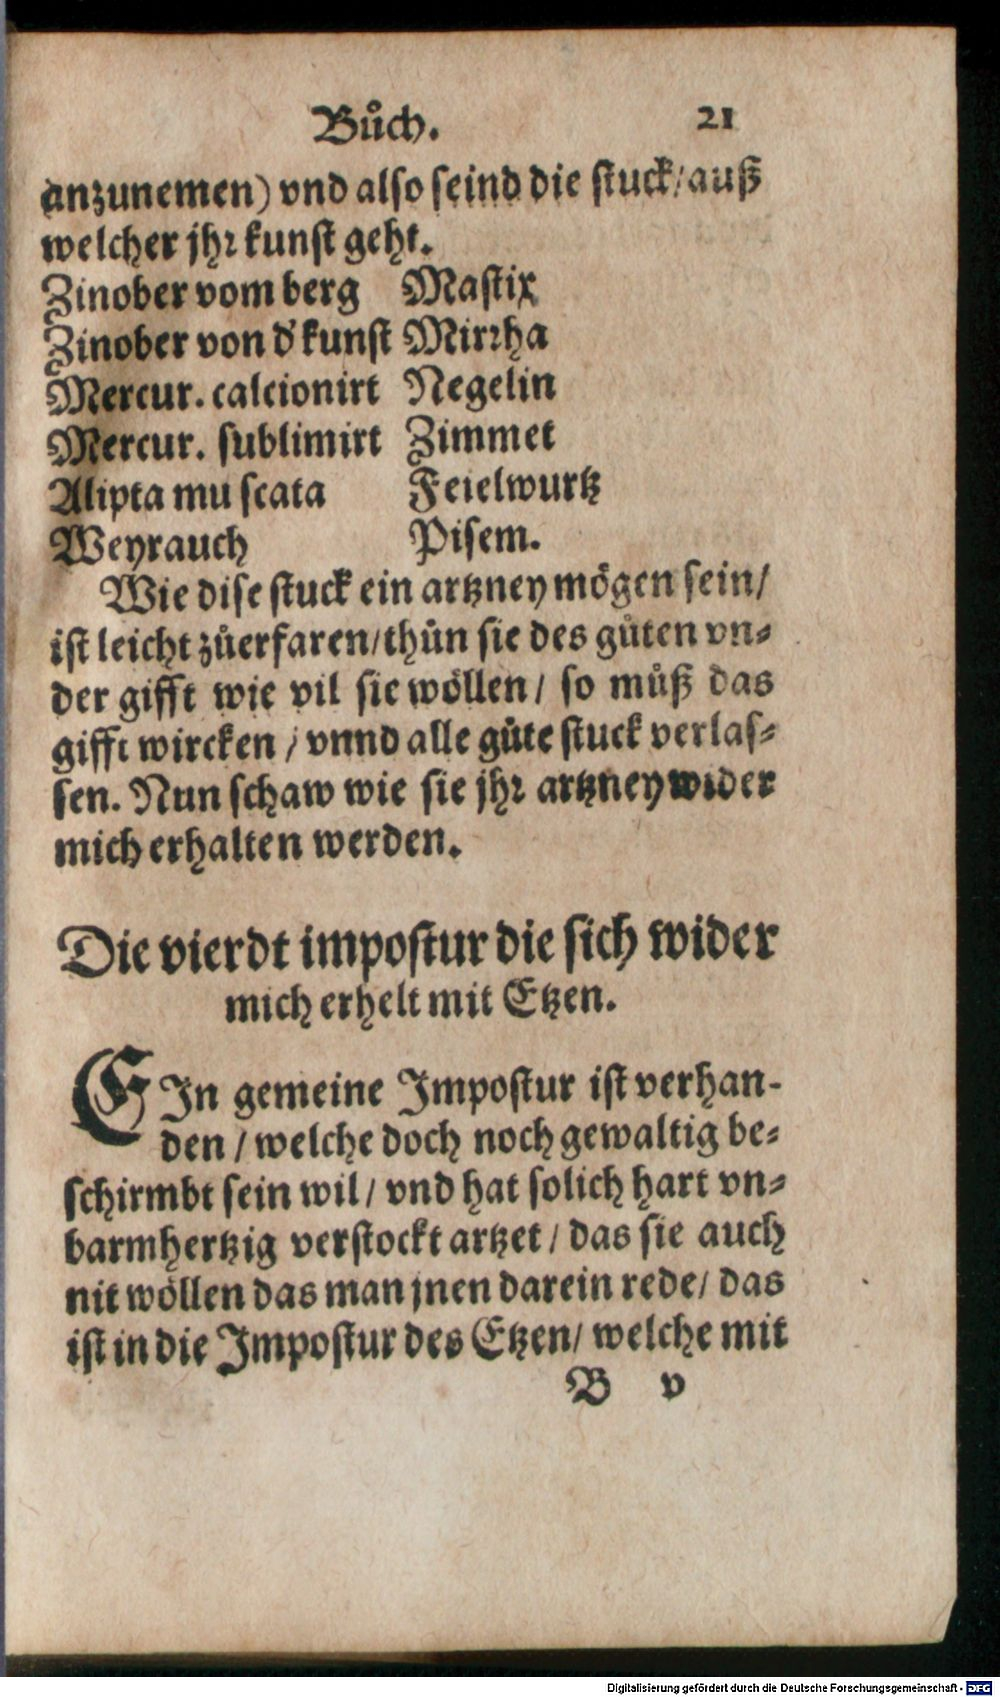 Bůch. 21
anzunemen) vnd also seind die stuck / auß
welcher jhr kunst geht.
Zinober vom berg Mastix
Zinober von d' kunst Mirrha
Mercur. calcionirt Negelin
Mercur. sublimirt Zimmet
Alipta muscata Feielwurtz
Weyrauch Pisem.
Wie dise stuck ein artzney mögen sein /
ist leicht zůerfaren / thůn sie des gůten vn⸗
der gifft wie vil sie wöllen / so můß das
gifft wircken / vnnd alle gůte stuck verlas⸗
sen. Nun schaw wie sie jhr artzney wider
mich erhalten werden.
Die vierdt impostur die sich wider
mich erhelt mit Etzen.
EIn gemeine Impostur ist verhan-
den / welche doch noch gewaltig be⸗
schirmbt sein wil / vnd hat solich hart vn⸗
barmhertzig verstockt artzet / das sie auch
nit wöllen das man jnen darein rede / das
ist in die Impostur des Etzen / welche mit
B v
Digitalisierung gefördert durch die Deutsche Forschungsgemeinschaft - DFG